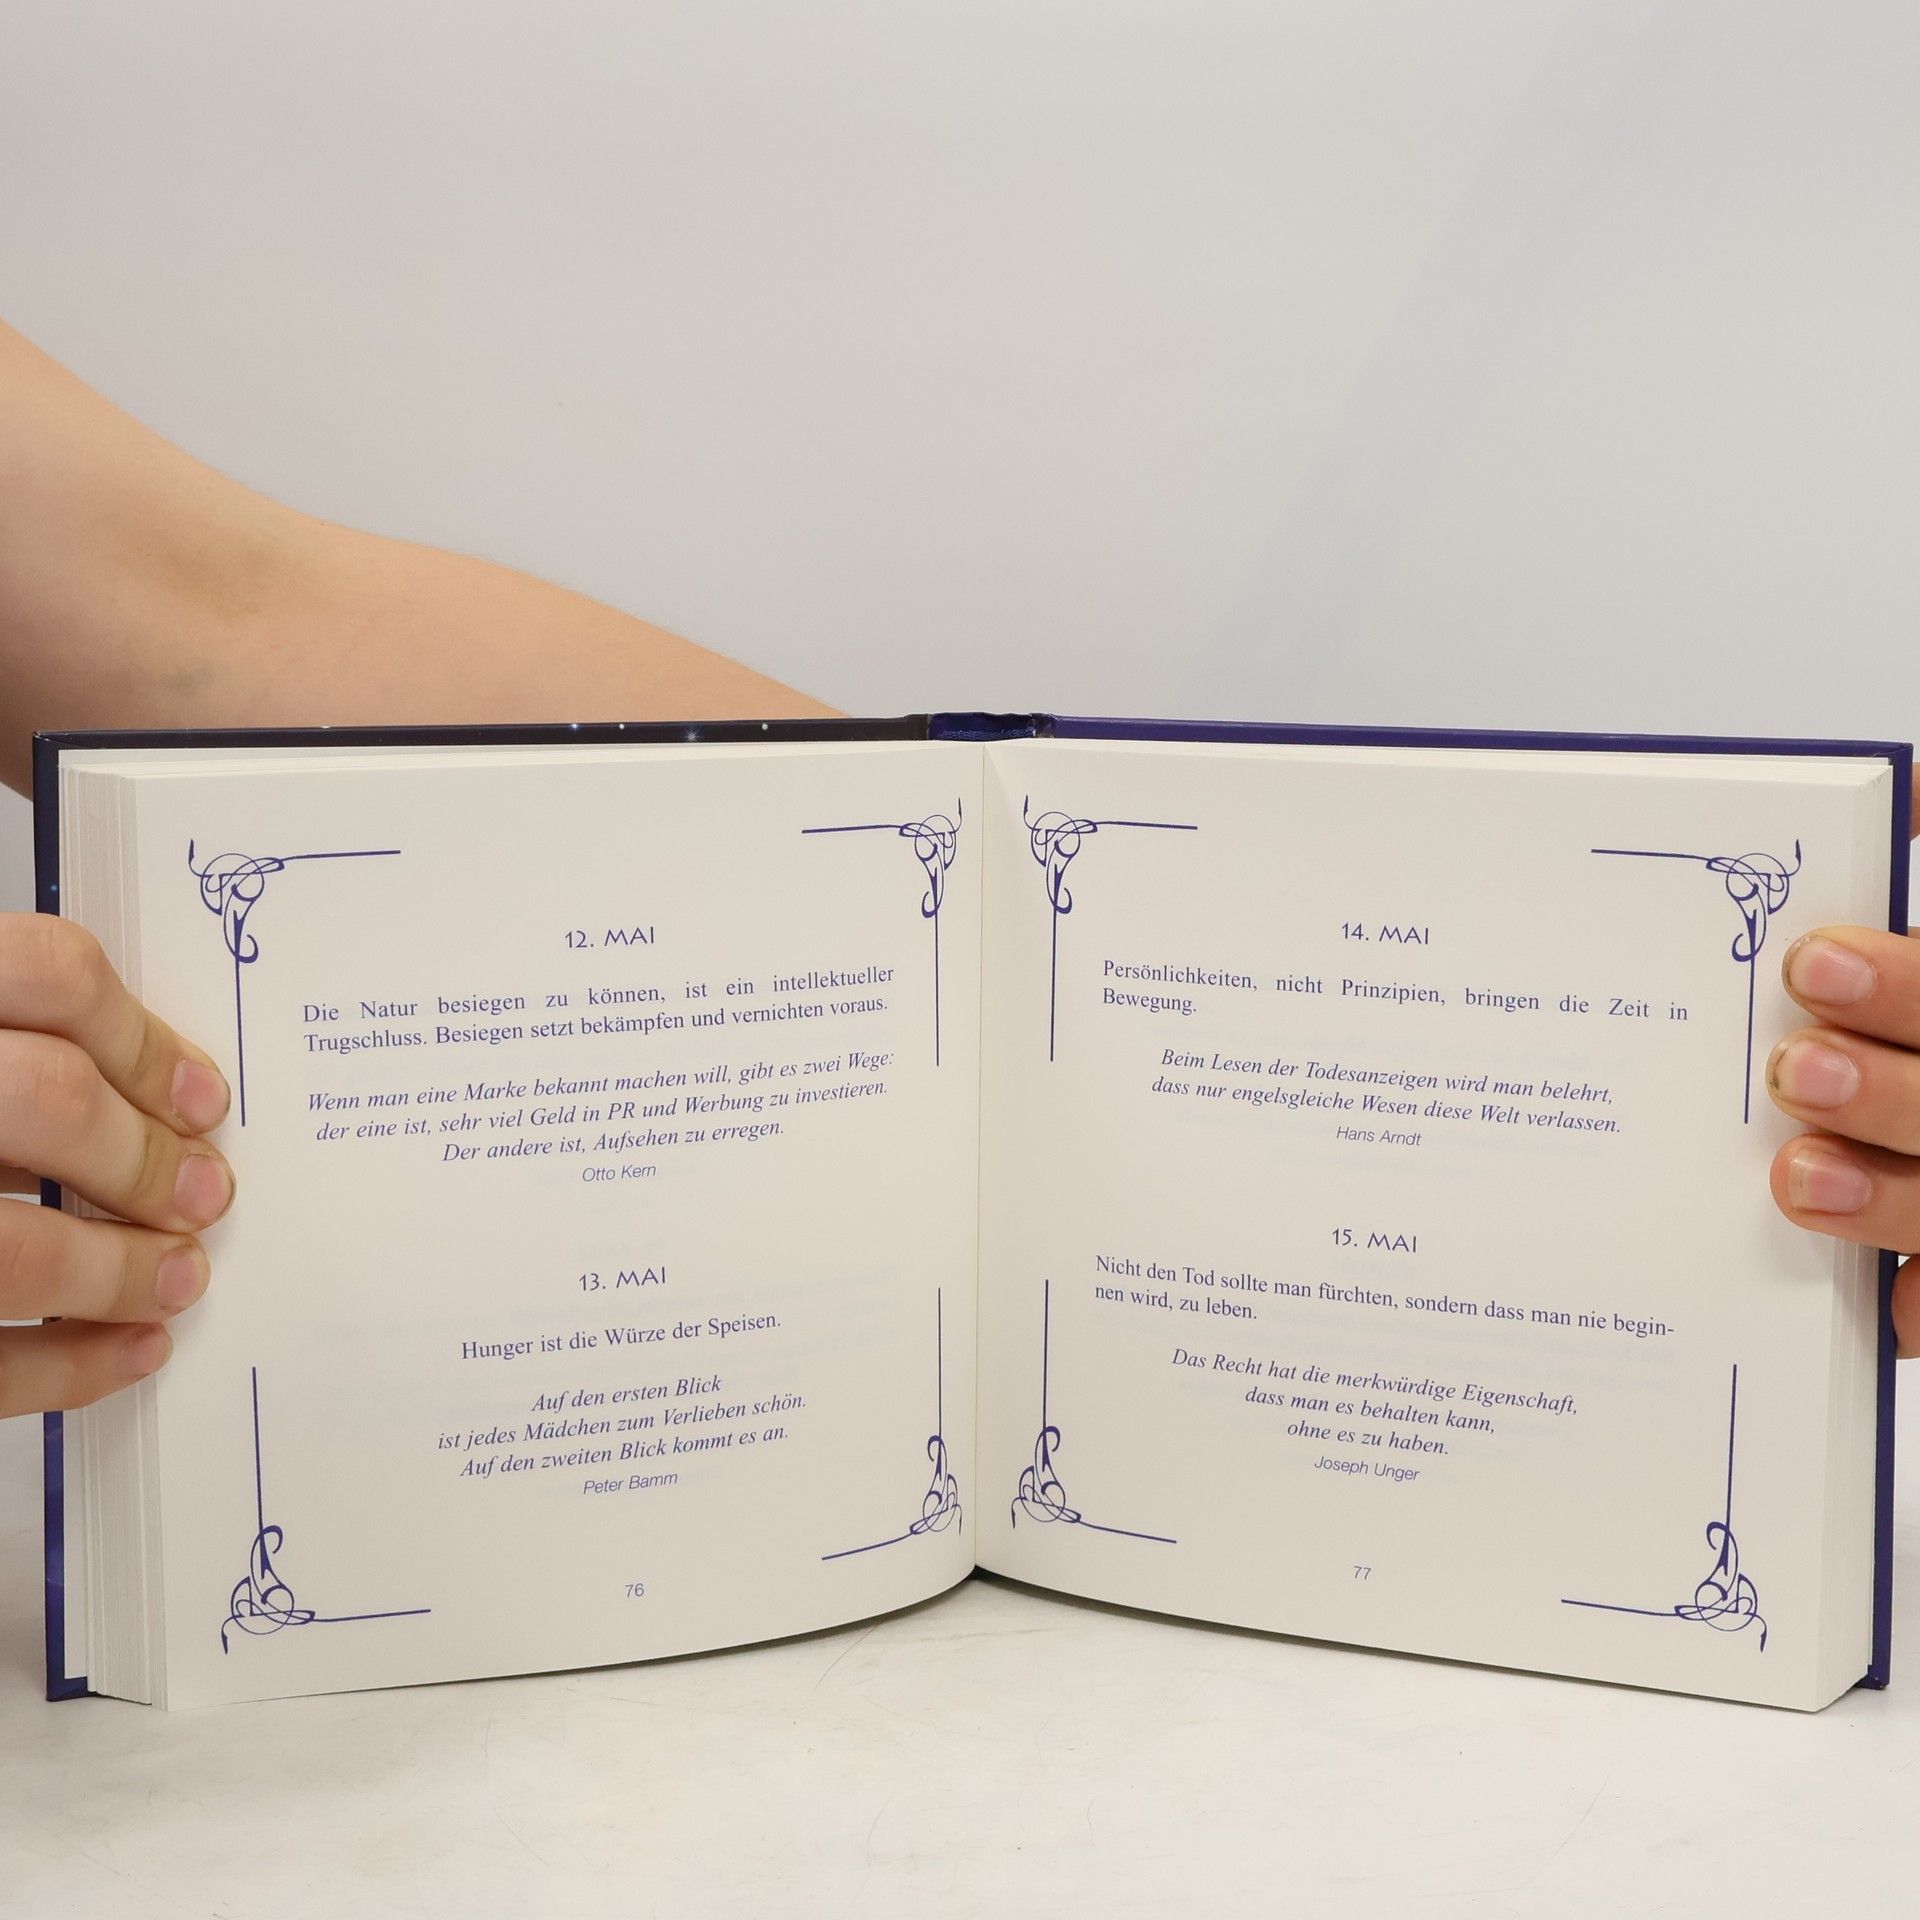 12. MAI
Die Natur besiegen zu können, ist ein intellektueller
Trugschluss. Besiegen setzt bekämpfen und vernichten voraus.
Wenn man eine Marke bekannt machen will, gibt es zwei Wege:
der eine ist, sehr viel Geld in PR und Werbung zu investieren.
Der andere ist, Aufsehen zu erregen.
Otto Kern
13. MAI
Hunger ist die Würze der Speisen.
Auf den ersten Blick
ist jedes Mädchen zum Verlieben schön.
Auf den zweiten Blick kommt es an.
Peter Bamm
76
14. MAI
Persönlichkeiten, nicht Prinzipien, bringen die Zeit in
Bewegung.
Beim Lesen der Todesanzeigen wird man belehrt,
dass nur engelsgleiche Wesen diese Welt verlassen.
Hans Arndt
15. MAI
Nicht den Tod sollte man fürchten, sondern dass man nie begin-
nen wird, zu leben.
Das Recht hat die merkwürdige Eigenschaft,
dass man es behalten kann,
ohne es zu haben.
Joseph Unger
77